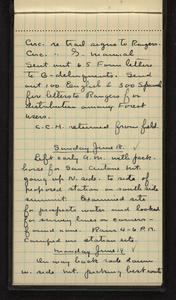 Circ. re trail signs to Rangers.
Circ. " G- manual
Sent out 65 Form letters
to G- delinquents. Send
out 100 English & 500 Spanish
fire letters to Rangers for
distribution among Forest
users.
C.C.H. returned from field.
Sunday June 18.
Left early A.M. with pack
horse for San Carlos but
going up N. side to site of
proposed station on south side
summit. Examined site
for prospects water and looked
for survey lines or corners—
found none. Rain 4-6 P.M.
Camped on station site.
Monday June 19.
On way back rode down
W. side picking best route